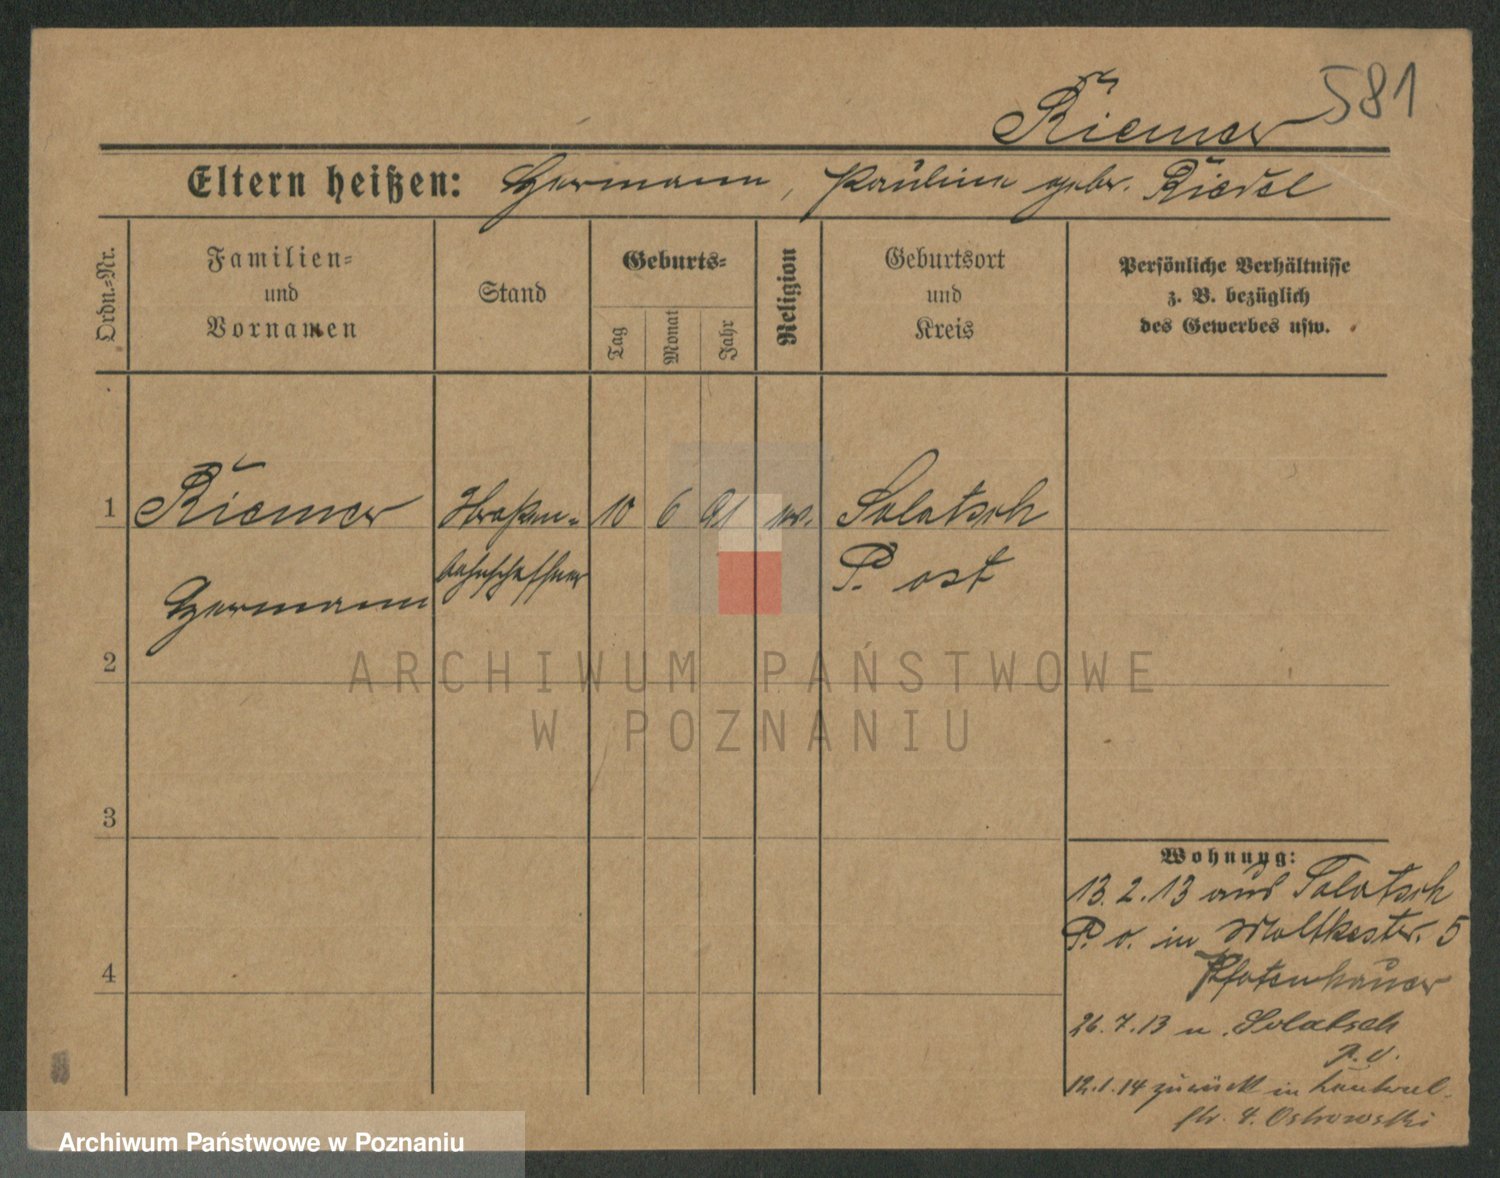 581
Riemer
Eltern heißen: Hermann, Pauline gebr. Riedel
Ordn.=Nr.
Familien=
und
Vornamen
Stand
Geburts=
Tag
Monat
Jahr
Religion
Geburtsort
und
Kreis
Persönliche Verhältnisse
z. B. bezüglich
des Gewerbes usw.
1 Riemer Straßen= 10 6 91 ev. Solatsch
Hermann bahnschaffner P. ost
2
3
4
ARCHIWUM PAŃSTWOWE
W POZNANIU
Wohnung:
13. 2. 13 aus Solatsch
P. o. in Moltkestr. 5
Pfotenhauer
26. 7. 13 n. Solatsch
P. O.
12. 1. 14 zurück in
str. Ostrowski
Archiwum Państwowe w Poznaniu